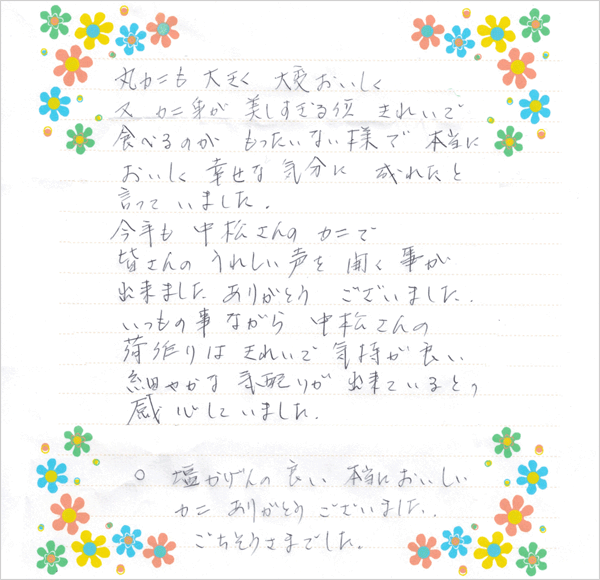 丸カニも 大きく 大変おいしく
又 カニ身が 美しすぎる位 きれいで
食べるのが もったいない様で 本当に
おいしく 幸せな 気分に 成れたと
言って いました.
今年も 中松さんの カニで
皆さんの うれしい 声を 聞く 事が
出来ました ありがとう ございました.
いつもの事 ながら 中松さんの
荷作りは きれいで 気持が 良い
細やかな 気配りが 出来ていると,
感心していました.
○ 塩かげんの 良い 本当に おいしい
カニ ありがとう ございました.
ごちそうさまでした.